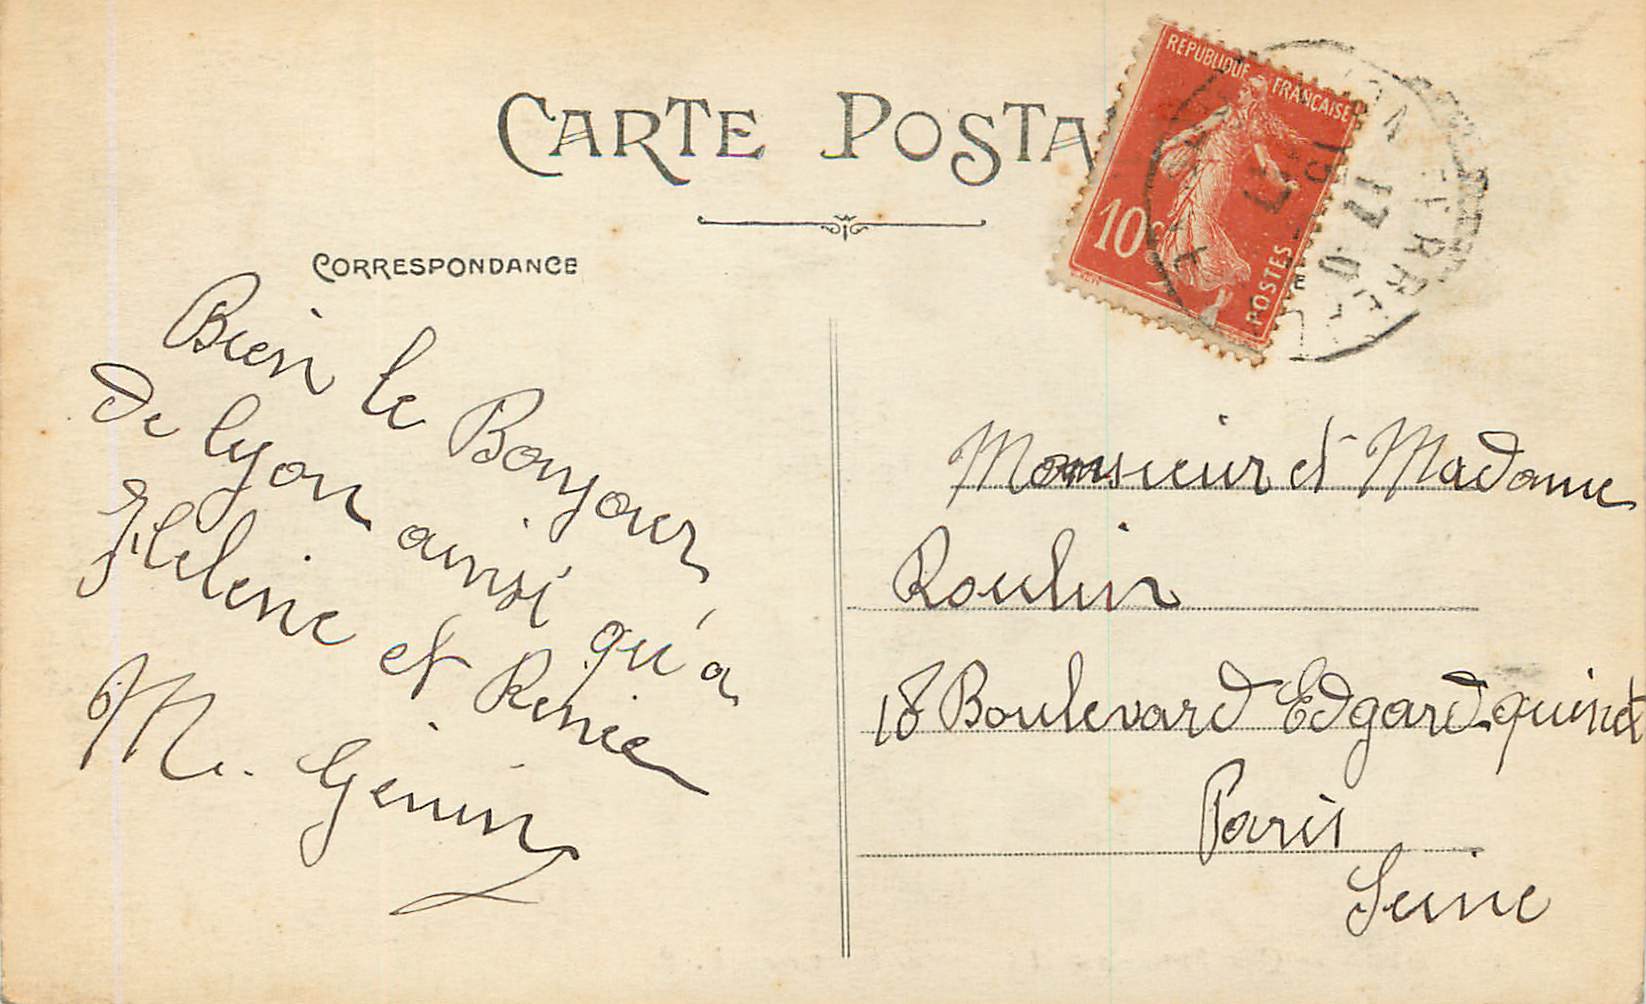 CARTE POSTA
REPUBLIQUE FRANÇAISE
10c
POSTES
LYON
TERREAUX
CORRESPONDANCE
Bien le Bonjour
de lyon ainsi qu'a
Helene et Renée
M. Genin
Monsieur et Madame
Roulin
18 Boulevard Edgard quinet
Paris
Seine